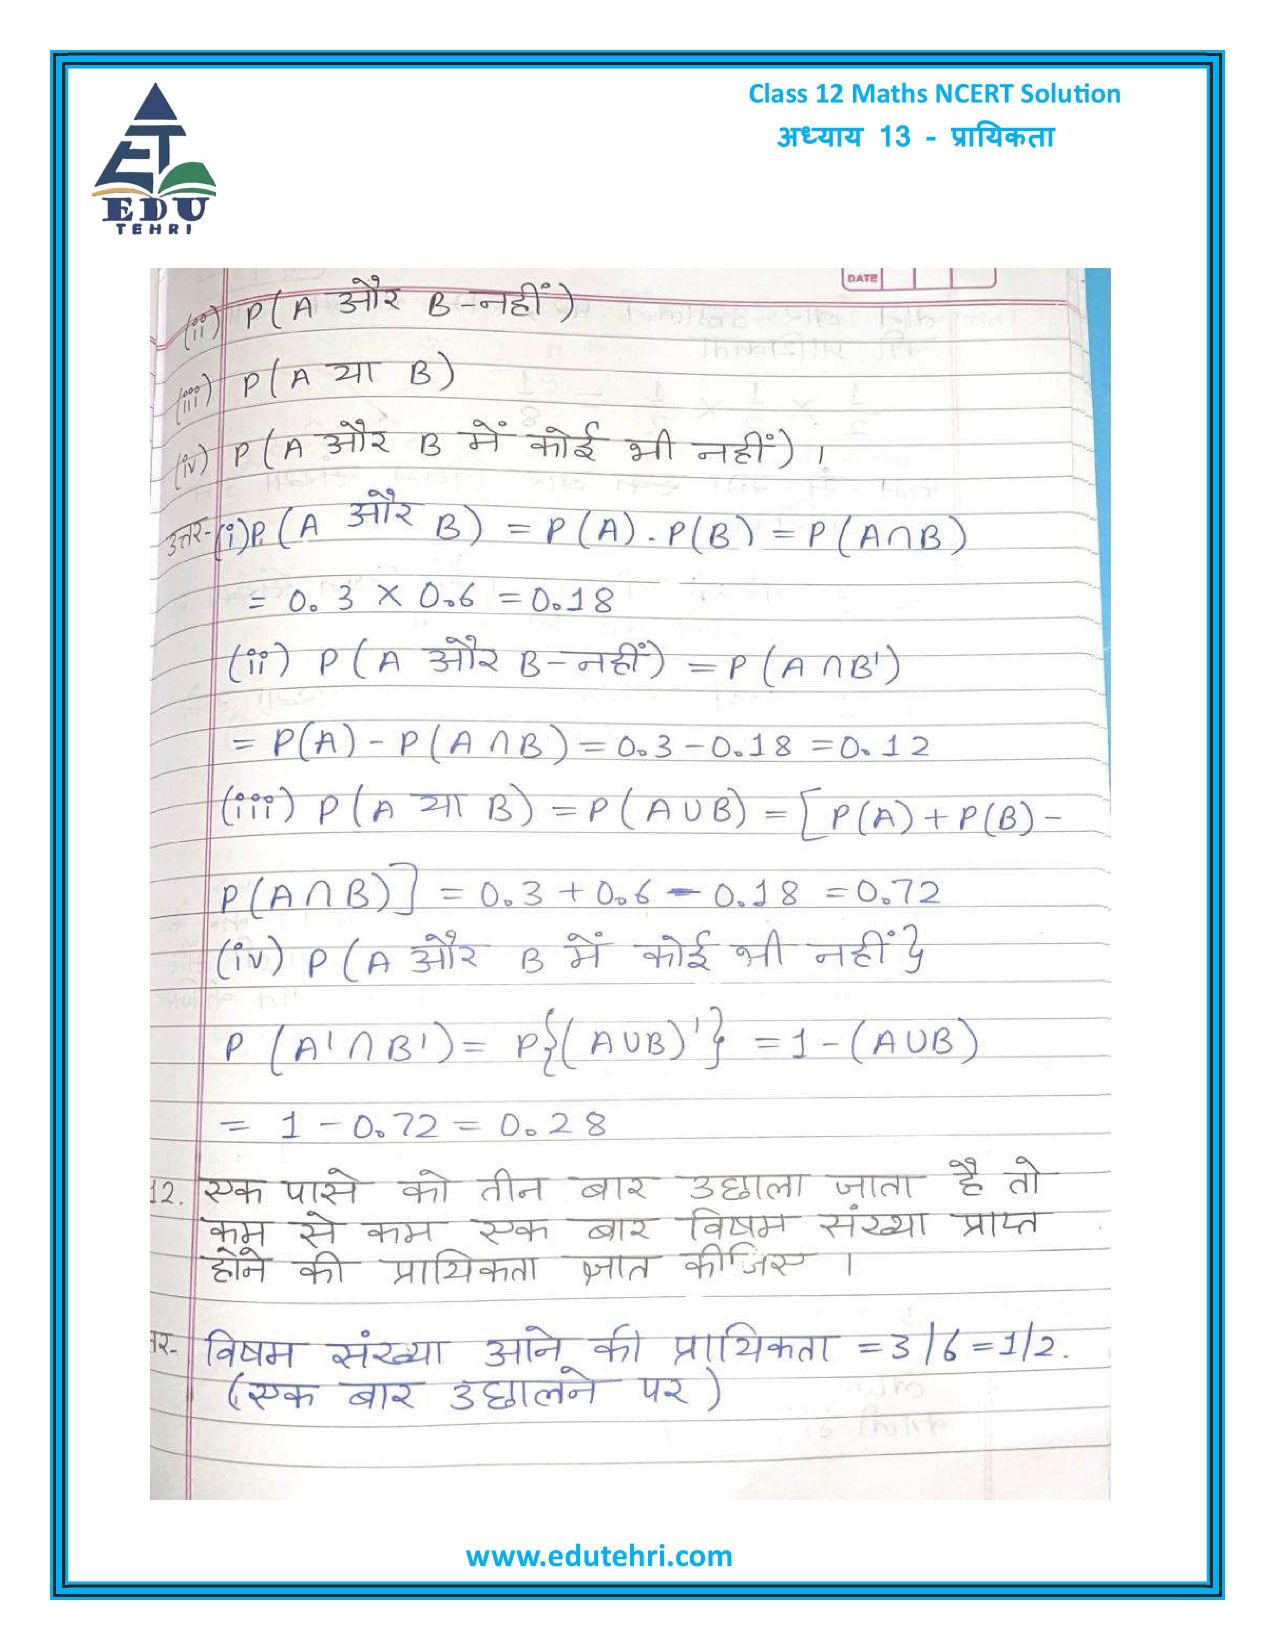 Class 12 Maths NCERT Solution
अध्याय 13 - प्रायिकता
EDU
TEHRI
DATE
(ii) P(A और B-नहीं)
(iii) P(A या B)
(iv) P(A और B में कोई भी नहीं)।
उत्तर- (i)P(A और B) = P(A).P(B) = P(A∩B)
= 0.3 × 0.6 = 0.18
(ii) P(A और B-नहीं) = P(A∩B')
= P(A) - P(A∩B) = 0.3 - 0.18 = 0.12
(iii) P(A या B) = P(A∪B) = [P(A) + P(B) -
P(A∩B)] = 0.3 + 0.6 - 0.18 = 0.72
(iv) P(A और B में कोई भी नहीं}
P (A'∩B') = P{(A∪B)'} = 1 - (A∪B)
= 1 - 0.72 = 0.28
12. एक पासे को तीन बार उछाला जाता है तो
कम से कम एक बार विषम संख्या प्राप्त
होने की प्रायिकता ज्ञात कीजिए ।
तर- विषम संख्या आने की प्रायिकता = 3/6 = 1/2.
(एक बार उछालने पर)
www.edutehri.com